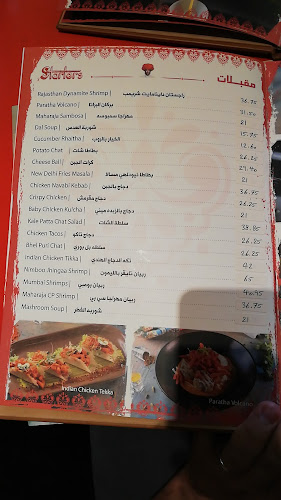 Starters مقبلات
Rajasthan Dynamite Shrimp | راجستان داينمايت شريمب 36.75
Paratha Volcano | بركان البراتا 31.50
Maharaja Sambosa | مهراجا سمبوسه 21
Dal Soup | شوربة العدس 15.75
Cucumber Rhaitha | الخيار بالروب 12.60
Potato Chat | بطاطا شات 26.25
Cheese Ball | كرات الجبن
New Delhi Fries Masala | بطاطا نيودلهي مسالا 21
Chicken Nawabi Kebab | 36.75
Crispy Chicken | دجاج مقرمش 26.25
Baby Chicken Kulcha | دجاج بالزبده ميني 21
Kale Patta Chat Salad | سلطة الشات
Chicken Tacos | دجاج تاكو
Bhel Puri Chat | سلطه بل بوري 26.25
Indian Chicken Tikka | تكه الدجاج الهندي 42
Nimboo Jhingaa Shrimp | ربيان تايقر بالليمون 65
Mumbai Shrimps | ربيان بومبي
Maharaja CP Shrimp | ربيان مهراجا سي بي 36.75
Mashroom Soup | شوربة الفطر 21
Indian Chicken Tekka
Paratha Volcano